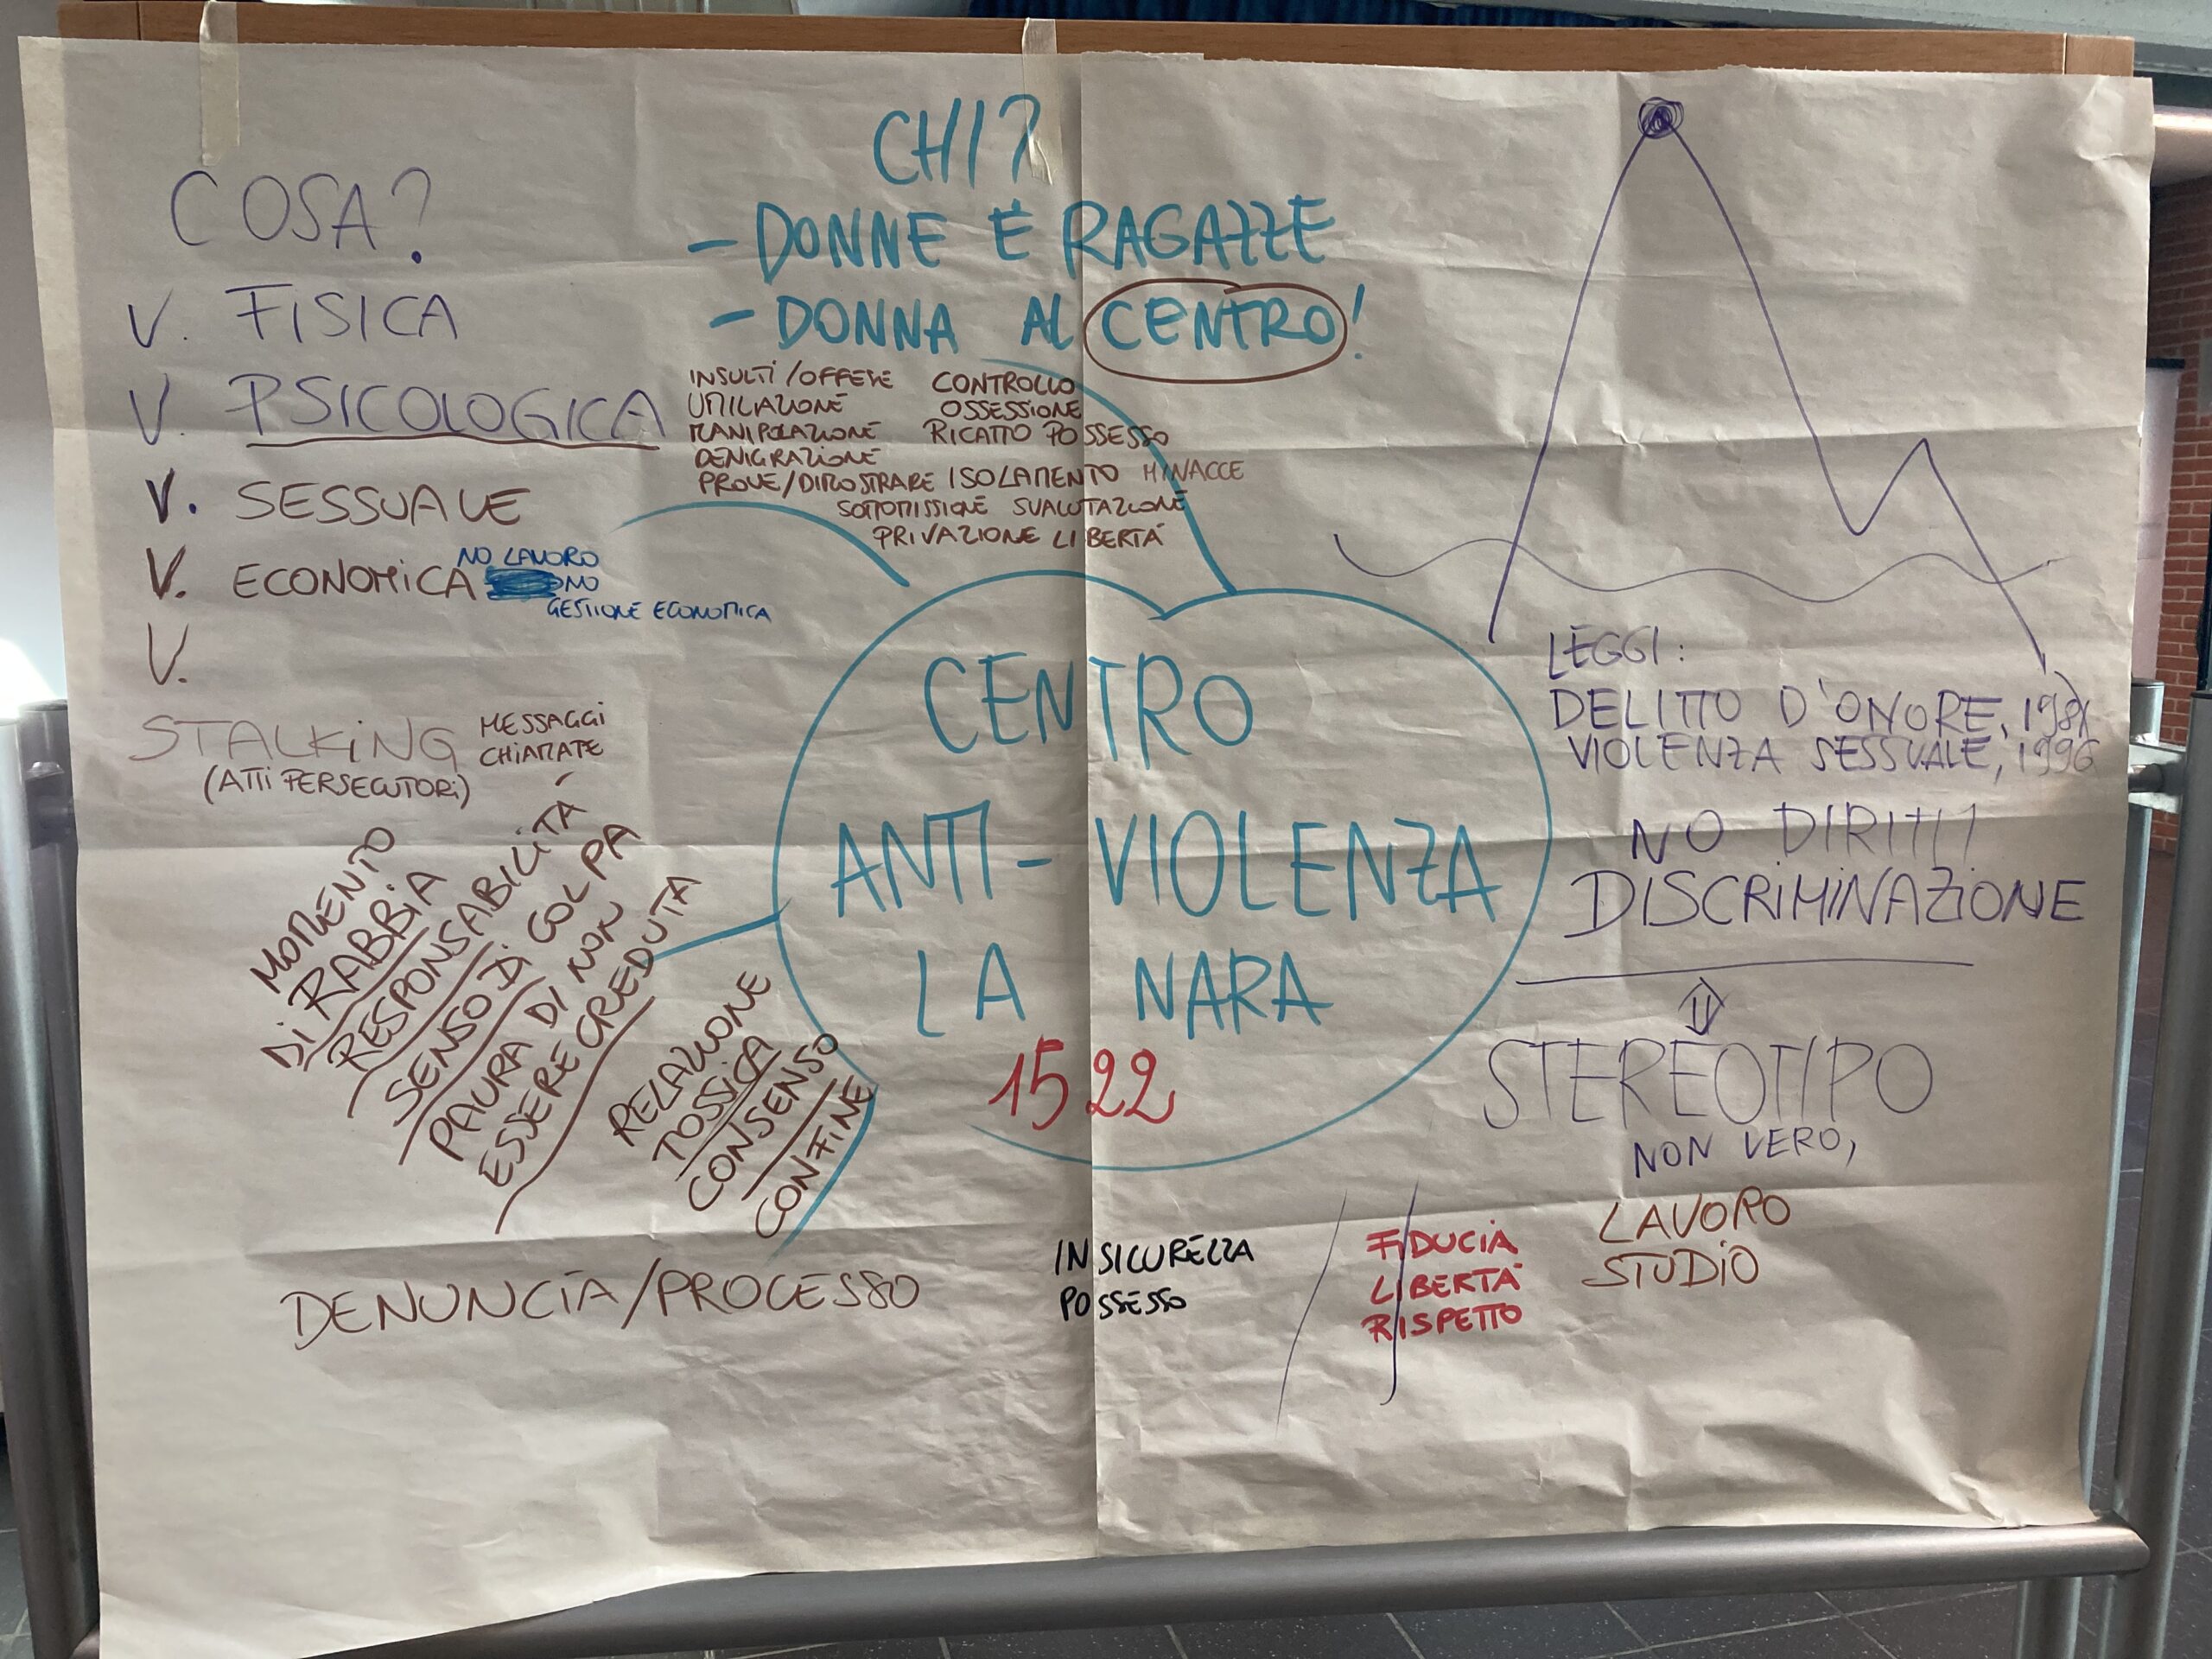 COSA?
V. FISICA
V. PSICOLOGICA
V. SESSUALE
V. ECONOMICA
NO LAVORO
NO
GESTIONE ECONOMICA
V.
STALKING
(ATTI PERSECUTORI)
MESSAGGI
CHIAMATE
CHI?
- DONNE E RAGAZZE
- DONNA AL CENTRO!
INSULTI/OFFESE CONTROLLO
UMILIAZIONE OSSESSIONE
MANIPOLAZIONE RICATTO POSSESSO
DENIGRAZIONE
PROVE/DIMOSTRARE ISOLAMENTO MINACCE
SOTTOMISSIONE SVALUTAZIONE
PRIVAZIONE LIBERTÀ
CENTRO
ANTI-VIOLENZA
LA NARA
1522
LEGGI:
DELITTO D'ONORE,
VIOLENZA SESSUALE, 1996
NO DIRITTI
DISCRIMINAZIONE
STEREOTIPO
NON VERO,
LAVORO
STUDIO
MOMENTO
DI RABBIA
RESPONSABILITÀ
SENSO DI COLPA
PAURA DI NON
ESSERE CREDUTA
RELAZIONE
TOSSICA
CONSENSO
CONFINE
DENUNCIA/PROCESSO
INSICUREZZA
POSSESSO
FIDUCIA
LIBERTÀ
RISPETTO